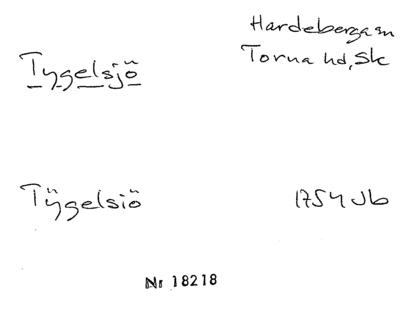 Hardeberga sn
Torna hd, Sk
Tygelsjö
Tÿgelsiö
1754 Jb
Nr 18218